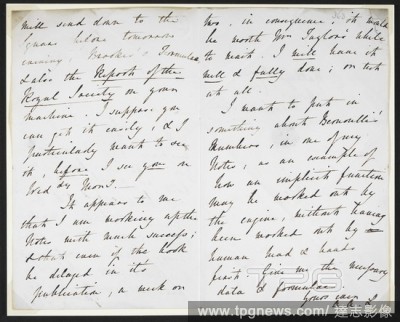 will send down to the
Square before tomorrow
evening, Brooke's Formulae,
& also the Report of the
Royal Society on your
machine. I suppose you
can get it easily, & I
particularly want to see
it, before I see you on
Wed'dy Morng.—
It appears to me
that I am working up the
Notes with much success;
& that even if the book
be delayed in its
publication, a week or
two, in consequence, it would
be worth Mr Taylor's while
to wait. I will have it
well & fully done; or not
at all.
I want to put in
something about Bernoulli's
Numbers, in one of my
Notes, as an example of
how an implicit function
may be worked out by
the engine, without having
been worked out by
human head & hands
first. Give me the necessary
data & formulae.
Yours ever
TPG
www.tpgnews.com | 達志影像